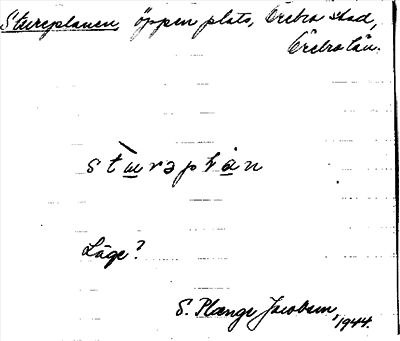 Stureplanen, öppen plats, Örebro stad,
Örebro län.
Läge?
S. Plænge Jacobson, 1944.